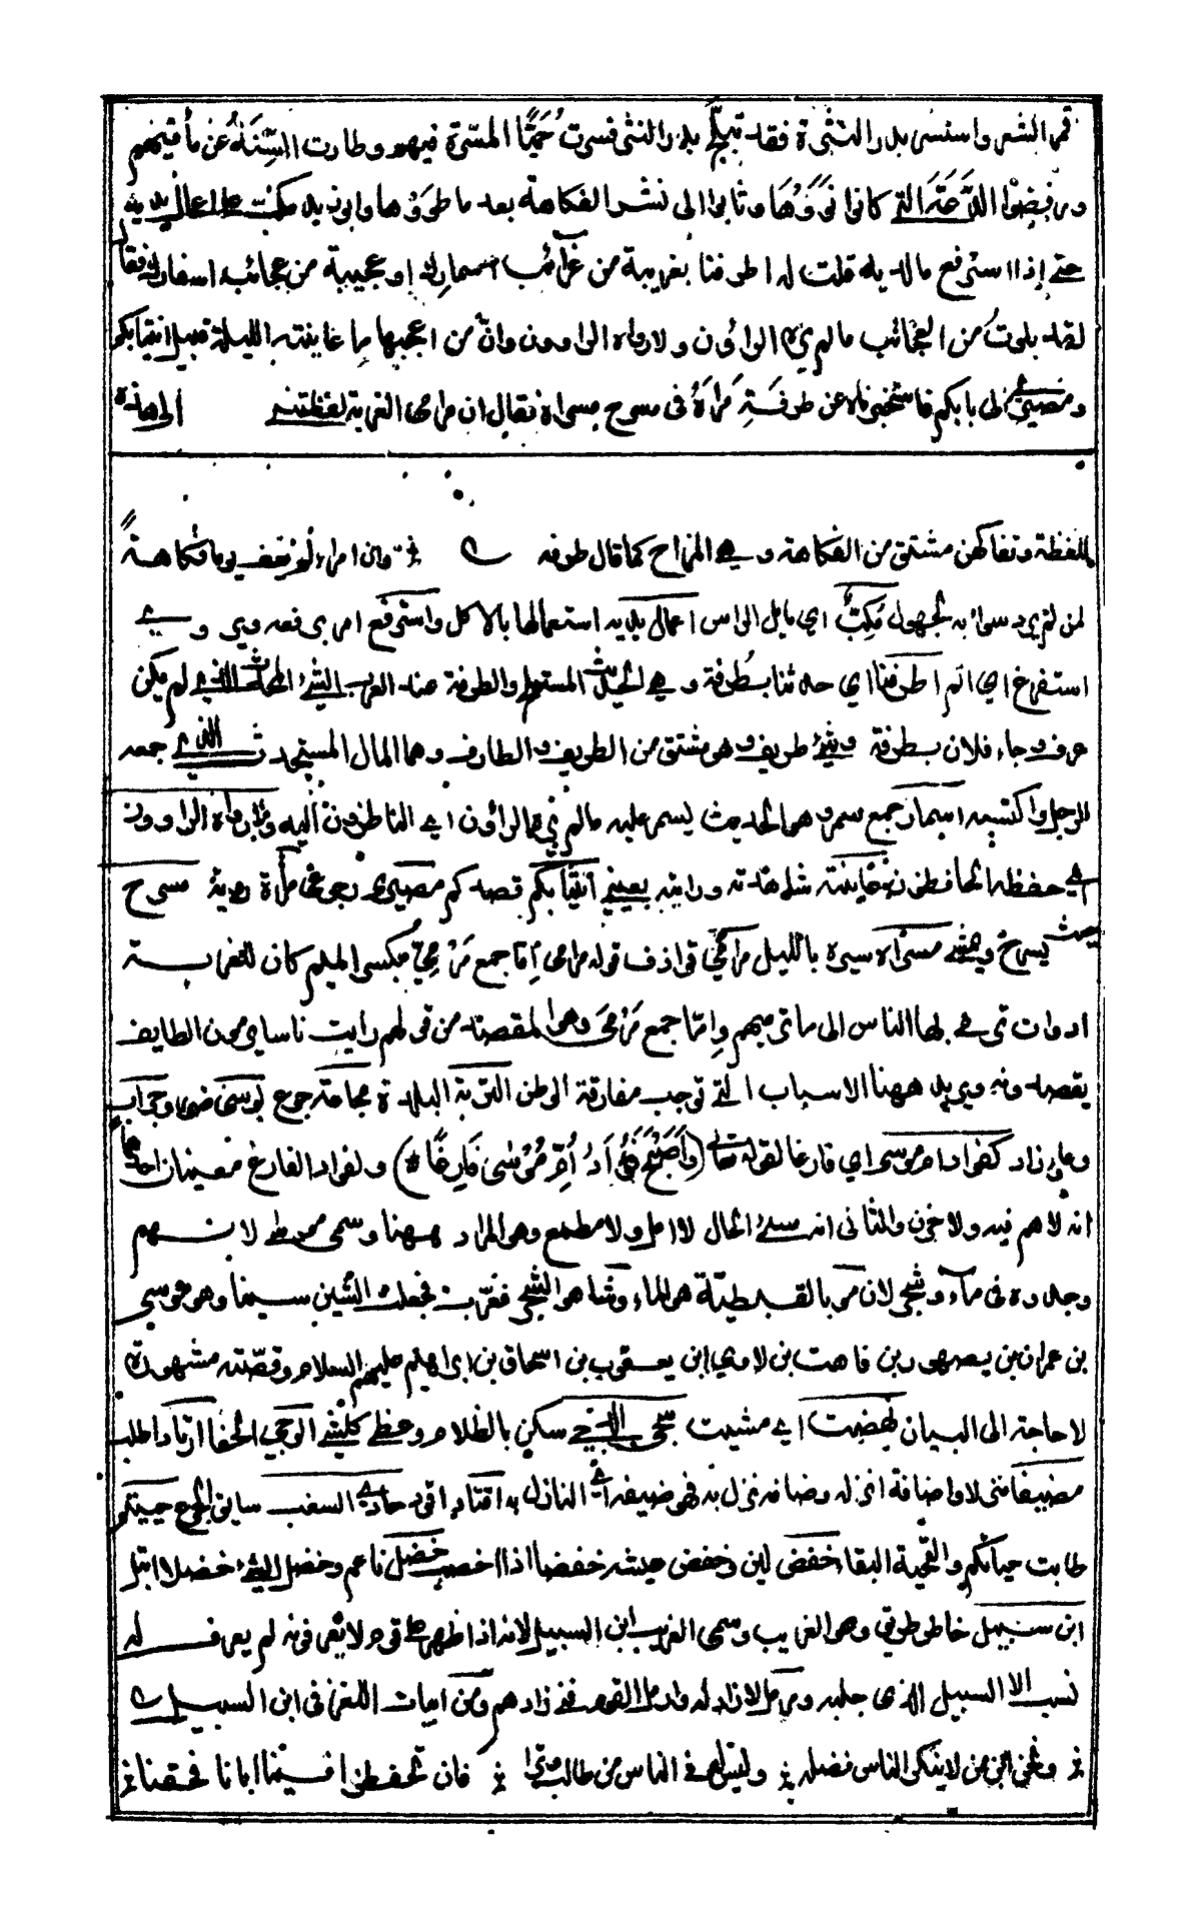 قمر الشعر واستسر بدر النثرة فقد تبلج بدر النثر فسرت حميا المسرة فيهم وطارت السنة عن مآقيهم
ورفضوا الدعة التي كانوا نووها وثابوا الى نشر الفكاهة بعد ما طووها وابو زيد مكب على اعمال يديه
حتى إذا استرفع ما لديه قلت له اطرفنا بغريبة من غرائب اسمارك او عجيبة من عجائب اسفارك فقال
لقد بلوت من العجائب ما لم يره الراؤن ولا رواه الراوون وانّ من اعجبها ما عاينته الليلة قبيل انتيابكم
ومصيري الى بابكم فاستخبرناه عن طرفة مرآه في مسرح مسراه فقال ان مرامي الغربة لفظتني الى هذه
للفظة وتفاكهن مشتق من الفكاهة وهي المزاح كما قال طرفه وان امرء لم يعف يوما فكاهة
لمن لم يرد سوأ به لجهول مُكِبٌّ اي مايل الراس اعمال يديه استعمالها بالاكل واسترفع امر برفعه وروي
استفرغ اي اتم اطرفنا اي حدثنا بطُرفة وهي الحديث المستملح والطرفة عند العرب الشئ المحدث الذي لم يكن
عرف وجاء فلان بطرفة وشئ طريف وهو مشتق من الطريف والطارف وهما المال المستحدث الذي جمعه
الرجل واكتسبه اسمار جمع سمر وهو الحديث يسمر عليه ما لم يره الراؤن اي الناظرون اليه ولا رواه الراوون
اي حفظه الحافظون عاينته شاهدته ورايته بعيني انتيابكم قصدكم مصيري رجوعي مرآة رؤية مسرح
حيث يسرح ويمشي مسراه سيره بالليل مرامي قواذف قوله مرامي إمّا جمع مَرْمِيّ بكسر الميم كان للغربة
ادوات ترمي بها الناس الى ما ترميهم وإمّا جمع مَرْمَى وهو المقصد من قولهم رايت ناسا يرمون الطايف
يقصدونه ويريد ههنا الاسباب التي توجب مفارقة الوطن التربة البلدة مجاعة جوع بوسى ضر وجراب
وعاء زاد كفواد ام موسى اي فارغا لقوله تعالى (وَاَصْبَحَ فُؤَادُ اُمِّ مُوْسٰى فَارِغًا) ولفواد الفارغ معنيان احدهما
انه لا هم فيه ولا حزن والثاني انه سئ الحال لا امل ولا مطمع وهو المراد ههنا وسمي موسى لانهم
وجدوه في ماء وشجر لان مو بالقبطية هو الماء وشا هو الشجر فعُرّب فجعلت الشين سينا وهو موسى
بن عمران بن يصهور بن قاهت بن لاوي ابن يعقوب بن اسحاق بن ابراهيم عليهم السلام وقصته مشهورة
لا حاجة الى البيان نهضت اي مشيت سجى الدجى سكن بالظلام وغطى كل شئ الوجى الحفا ارتاد اطلب
مضيفا منزلا واضافه انزله وضافه نزل به فهو ضيفه اي النازل به اقتاد اقود حادي السغب سائق الجوع حييتم
طابت حياتكم والتحية البقاء خفض لين وخفض عيشه خفضا اذا اخصب خضل ناعم وخضل الشئ خضلا ابتل
ابن سبيل خاطر طريق وهو الغريب وسمي الغريب ابن السبيل لانه اذا ظهر على قوم لا يعرفونه لم يعرف له
نسب الا السبيل الذي جلبه ومرمل لا زاد له وارمل القوم فني زادهم ومن ابيات اللغز في ابن السبيل
ونحن ابن من لا ينكر الناس فضله وليس له في الناس من طالب فان تحفظوا فينا ابانا فحقنا